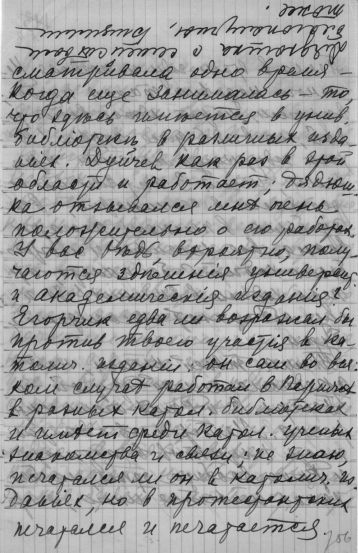 сматривала одно время –
когда еще занималась – то
что здѣсь имѣется в унив.
библіотекѣ в различных изда-
ніях. Дуйчев как раз в этой
области и работает, дядюш-
ка отзывался мнѣ очень
положительно о его работах.
У вас вѣдь, вѣроятно, полу-
чаются здѣшнія университ.
и академическія изданія?
Егорчик едва ли возражал бы
против твоего участія в ка-
толич. изданіи: он сам во вся-
ком случаѣ работал в Парижѣ
в разных катол. библіотеках
и имѣет среди катол. ученых
знакомства и связи; не знаю,
печатался ли он в католич. из-
даніях, но в протестантских
печатался и печатается.